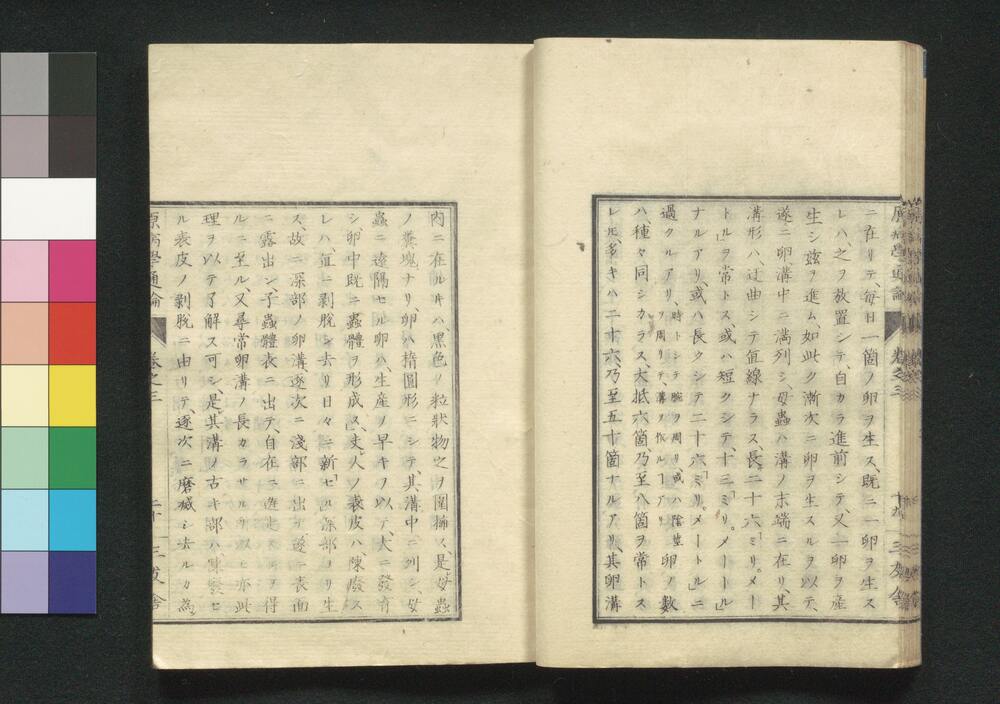 ニ在リテ、毎日一箇ノ卵ヲ生ス、既ニ一卵ヲ生ス
レハ之ヲ放置シテ、自カラ進前シテ、又一卵ヲ産
生シ玆ヲ進ム、如此ク漸次ニ卵ヲ生スルヲ以テ、
遂ニ卵溝中ニ満列シ、母蟲ハ溝ノ末端ニ在リ、其
溝形ハ、迂曲シテ直線ナラス、長二十六「ミリメー
トル」ヲ常トス、或ハ短クシテ、十三「ミリメートル」
ナルアリ、或ハ長クシテ二十六「ミリメートル」ニ
過クルアリ、時トシテ腕ヲ周リ或ハ陰莖ヲ周リテ、溝ヲ作ルヿアリ卵ノ數
ハ、種々同シカラス、大抵六箇、乃至八箇ヲ常トス
レ𪜈、多キハ二十六、乃至五十箇ナルアリ、其卵溝
原病學通論 巻之三 十九 三友舎
内ニ在ルキハ、黒色ノ粒狀物之ヲ圍擁ス、是母蟲
ノ糞塊ナリ、卵ハ楕圓形ニシテ、其溝中ニ列シ、母
蟲ニ遠隔セル卵ハ、生産ノ早キヲ以テ、大ニ發育
シ、卵中既ニ蟲體ヲ形成ス、丈人ノ表皮ハ、陳廢ス
レハ、直ニ剥脫シ去リ日々ニ新セル深部ヨリ生
ス、故ニ深部ノ卵溝逐次ニ淺部ニ出テ遂ニ表面
ニ露出シ子蟲體表ニ出テ、自在ニ遊走スルヲ得
ルニ至ル、又尋常卵溝ノ長カラサル所以モ亦此
理ヲ以テ了解ス可シ是其溝ノ古キ部ハ、陳廢セ
ル表皮ノ剥脫ニ由リテ、逐次ニ磨滅シ去ルカ為
原病學通論 巻之三 二十 三友舎